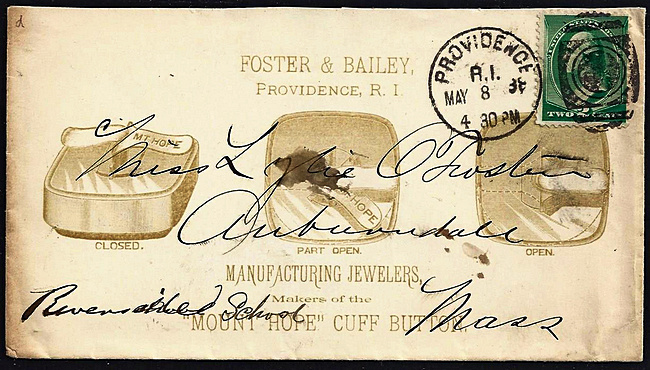 FOSTER & BAILEY,
PROVIDENCE, R. I.
PROVIDENCE
R.I.
MAY 8
4 30 PM
TWO
MT HOPE
HOPE
Miss Lizzie O Foster
Auburndale
CLOSED.
PART OPEN.
OPEN.
MANUFACTURING JEWELERS,
Makers of the
"MOUNT HOPE" CUFF BUTTON,
Riverside School
Mass